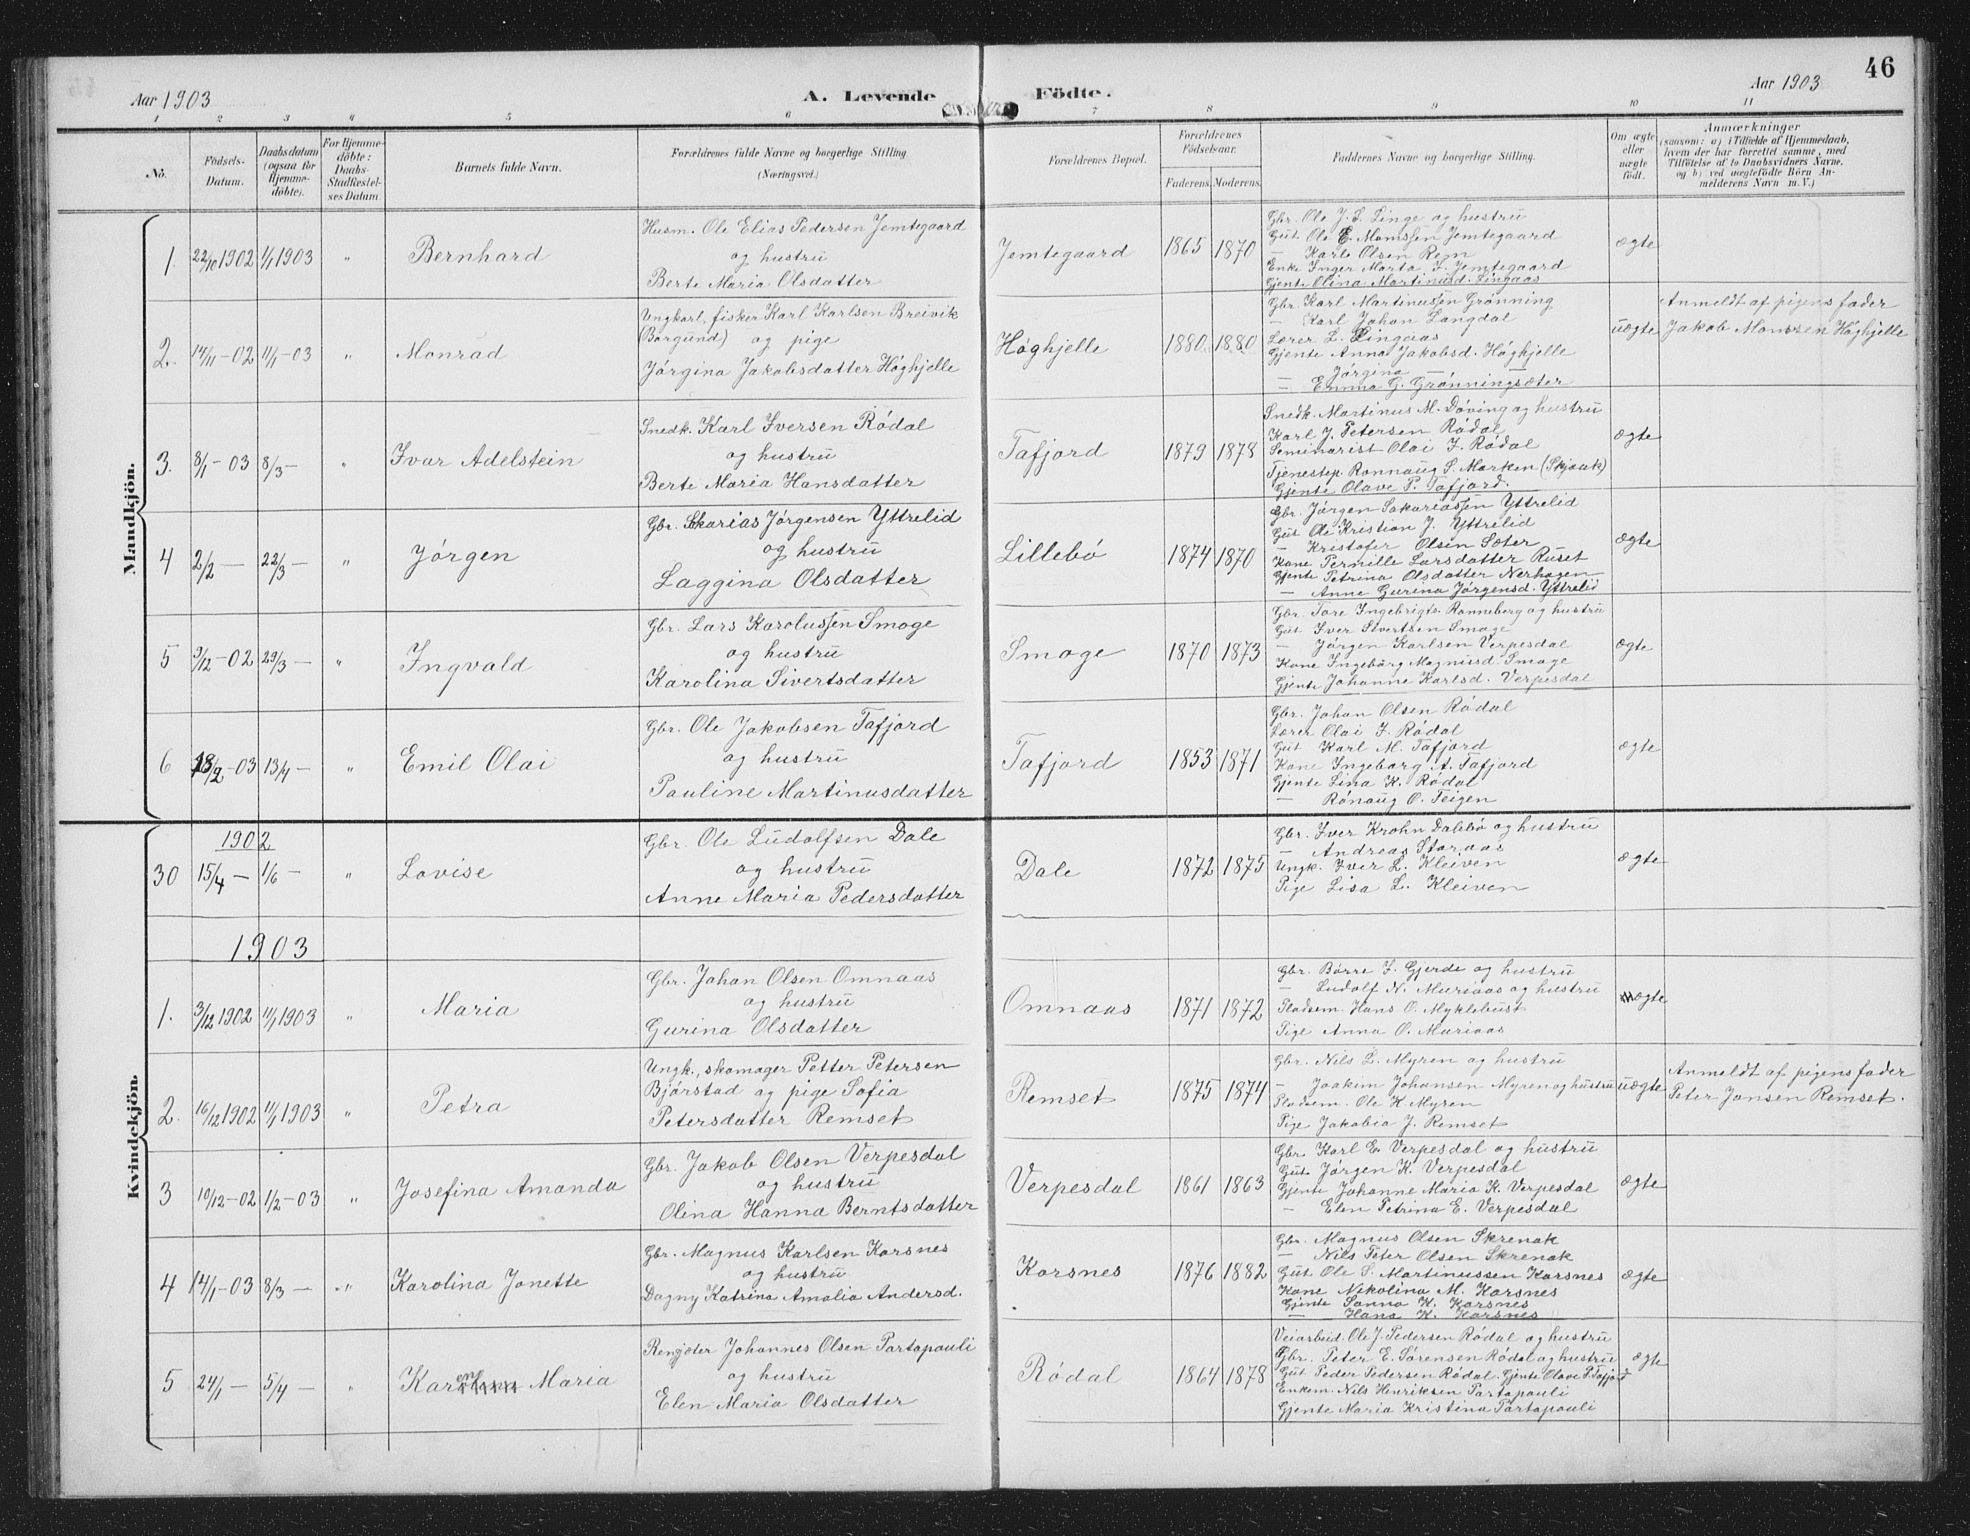 46
Aar 1903
A. Levende
Födte.
Aar 1903
1 2 3 4 5 6 7 8 9 10 11
No.
Födsels-Datum.
Daabsdatum (ogsaa for Hjemme-döbte).
For Hjemme-döbte: Daabs-Stadfæstel-ses Datum
Barnets fulde Navn.
Forældrenes fulde Navne og borgerlige Stilling (Næringsvei.)
Forældrenes Bopæl.
Forældrenes Födselsaar.
Faderens. Moderens.
Faddernes Navne og borgerlige Stilling.
Om ægte eller uægte födt.
Anmærkninger
(saasom: a) i Tilfælde af Hjemmedaab,
hvem der har forrettet samme, med
Tilföielse af to Daabsvidners Navne,
og b) ved uægtefödte Börn An-
melderens Navn m. V.)
Mandkjön.
1. 22/10 1902 1/1 1903 " Bernhard
Husm. Ole Elias Pedersen Jemtegaard
og hustrü
Berte Maria Olsdatter
Jemtegaard 1865 1870
Gbr. Ole J. L. Linge og hustrü
Gut Ole E. Monssen Jemtegaard
— Karl Olsen Rem
Enke Inger Marta J. Jemtegaard
Gjente Olina Martinusd. Lingaas
ægte
2. 14/11-02 1/1-03 " Monrad
Ungkarl, fisker Karl Karlsen Breivik
(Borgund) og pige
Jørgina Jakobsdatter Høghjelle
Høghjelle 1880 1880
Gbr. Karl Martinussen Grønning
— Karl Johan Langdal
Lærer L. Lingaas
Gjente Anna Jakobsd. Høghjelle
— Jørgina —
— Emma G. Grønningsæter
uægte
Anmeldt af pigens fader
Jakob Monssen Høghjelle
3. 8/1-03 8/3- " Ivar Adelstein
Snedk. Karl Iversen Rødal
og hustrü
Berte Maria Hansdatter
Tafjord 1879 1878
Snedk. Martinus M. Døving og hustrü
Karl J. Petersen Rødal
Seminarist Olai I. Rødal
Tjenestep. Rønnaug S. Marken (Skjaak)
Gjente Olave P. Tafjord.
ægte
4 2/2 - 22/3 - " Jørgen
Gbr. Sakarias Jørgensen Yttrelid
og hustrü
Laggina Olsdatter
Lillebø 1874 1870
Gbr. Jørgen Sakariassen Yttrelid
Gut Ole Kristian J. Yttrelid
— Kristofer Olsen Sæter
Kone Pernille Larsdatter Ruset
Gjente Petrina Olsdatter Nerhagen
— Anne Gurina Jørgensd. Yttrelid
ægte
5 3/12-02 29/3- " Ingvald
Gbr. Lars Karolussen Smoge
og hustrü
Karolina Sivertsdatter
Smoge 1870 1873
Gbr. Tore Ingebrigts. Rønneberg og hustrü
Gut Iver Sivertsen Smoge
— Jørgen Karlsen Verpesdal
Kone Ingebørg Magnusd. Smoge
Gjente Johanne Karlsd. Verpesdal
ægte
6 18/2-03 13/4- " Emil Olai
Gbr. Ole Jakobsen Tafjord
og hustrü
Pauline Martinusdatter
Tafjord 1853 1871
Gbr. Johan Olsen Rødal
Lærer Olai I. Rødal
Gut Karl M. Tafjord
Kone Ingeborg A. Tafjord
Gjente Lina K. Rødal
— Rønaug O. Teigen
ægte
Kvindekjön.
1902
30 15/4 - 1/6 - " Lovise
Gbr. Ole Ludolfsen Dale
og hustrü
Anne Maria Pedersdatter
Dale 1872 1875
Gbr. Iver Krohn Dalebø og hustrü
— Andreas Storaas
Ungk. Iver L. Kleiven
Pige Lisa L. Kleiven
ægte
1903
1. 3/12 1902 11/1 1903 " Maria
Gbr. Johan Olsen Omnaas
og hustrü
Gurina Olsdatter
Omnaas 1871 1872
Gbr. Børre I. Gjerde og hustrü
— Ludolf N. Muriaas og hustrü
Pladsem. Hans O. Myklebust
Pige Anna O. Muriaas
ægte
2. 16/12 1902 11/1 1903 " Petra
Ungk., skomager Petter Petersen
Bjørstad og pige Sofia
Petersdatter Remset
Remset 1875 1874
Gbr. Nils L. Myren og hustrü
— Joakim Johansen Myren og hustrü
Pladsem. Ole K Myren
Pige Jakobia J. Remset
uægte
Anmeldt af pigens fader
Peter Jansen Remset.
3 10/12-02 1/2-03 " Josefina Amanda
Gbr. Jakob Olsen Verpesdal
og hustrü
Olina Hanna Berntsdatter
Verpesdal 1861 1863
Gbr. Karl E. Verpesdal og hustrü
Gut Jørgen K. Verpesdal
Gjente Johanne Maria K. Verpesdal
— Elen Petrina E. Verpesdal
ægte
4 14/1-03 8/3 - " Karolina Jonette
Gbr. Magnus Karlsen Korsnes
og hustrü
Dagny Katrina Amalia Andersd.
Korsnes 1876 1882
Gbr. Magnus Olsen Skrenak
— Nils Peter Olsen Skrenak
Gut Ole S. Martinussen Korsnes
Kone Nikolina M. Korsnes
Gjente Sanna K. Korsnes
— Hana K. Korsnes
ægte
5 24/1 - 5/4 - " Karen Maria
Rengjæter Johannes Olsen Partapauli
og hustrü
Elen Maria Olsdatter
Rødal 1864 1878
Veiarbeid. Ole J. Pedersen Rødal og hustrü
Gbr. Peter E. Sørensen Rødal og hustrü
Gut Peder Pedersen Rødal. Gjente Olave P. Tafjord
Enkem. Nils Henriksen Partapauli
Gjente Maria Kristina Partapauli
ægte